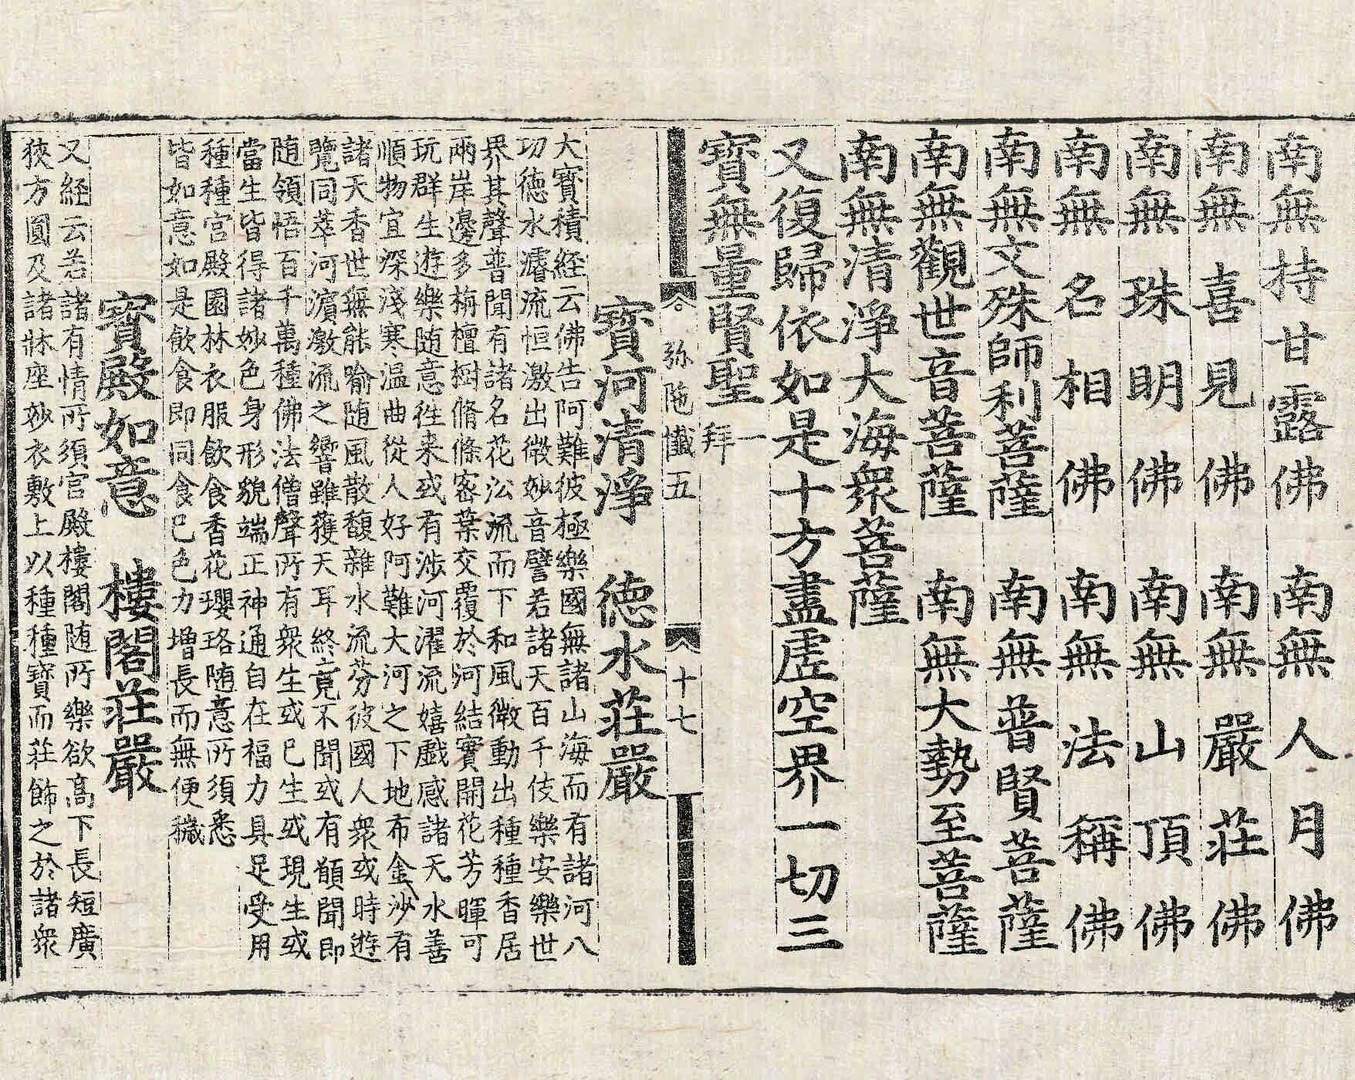 南無持甘露佛　南無人月佛
南無喜見佛　南無嚴莊佛
南無珠明佛　南無山頂佛
南無名相佛　南無法稱佛
南無文殊師利菩薩　南無普賢菩薩
南無觀世音菩薩　南無大勢至菩薩
南無清淨大海衆菩薩
又復歸依如是十方盡虛空界一切三
寶無量賢聖一拜
弥陁懺五　十七
寶河清淨　德水莊嚴
大寶積經云佛告阿難彼極樂國無諸山海而有諸河八
功德水濬流恒激出微妙音譬若諸天百千伎樂安樂世
界其聲普聞有諸名花㳂流而下和風微動出種種香居
兩岸邊多栴檀樹脩條密葉交覆於河結實開花芳暉可
玩群生遊樂随意徃来或有涉河濯流嬉戲感諸天水善
順物宜深淺寒温曲從人好阿難大河之下地布金沙有
諸天香世無能喻随風散馥雜水流芬彼國人衆或時遊
覽同萃河濵激流之響雖獲天耳終竟不聞或有願聞即
随領悟百千萬種佛法僧聲所有衆生或已生或現生或
當生皆得諸妙色身形貌端正神通自在福力具足受用
種種宮殿園林衣服飲食香花瓔珞随意所須悉
皆如意如是飲食即同食已色力增長而無便穢
寶殿如意　樓閣莊嚴
又經云若諸有情所須宮殿樓閣随所樂欲高下長短廣
狹方圓及諸牀座妙衣敷上以種種寶而莊飾之於諸衆